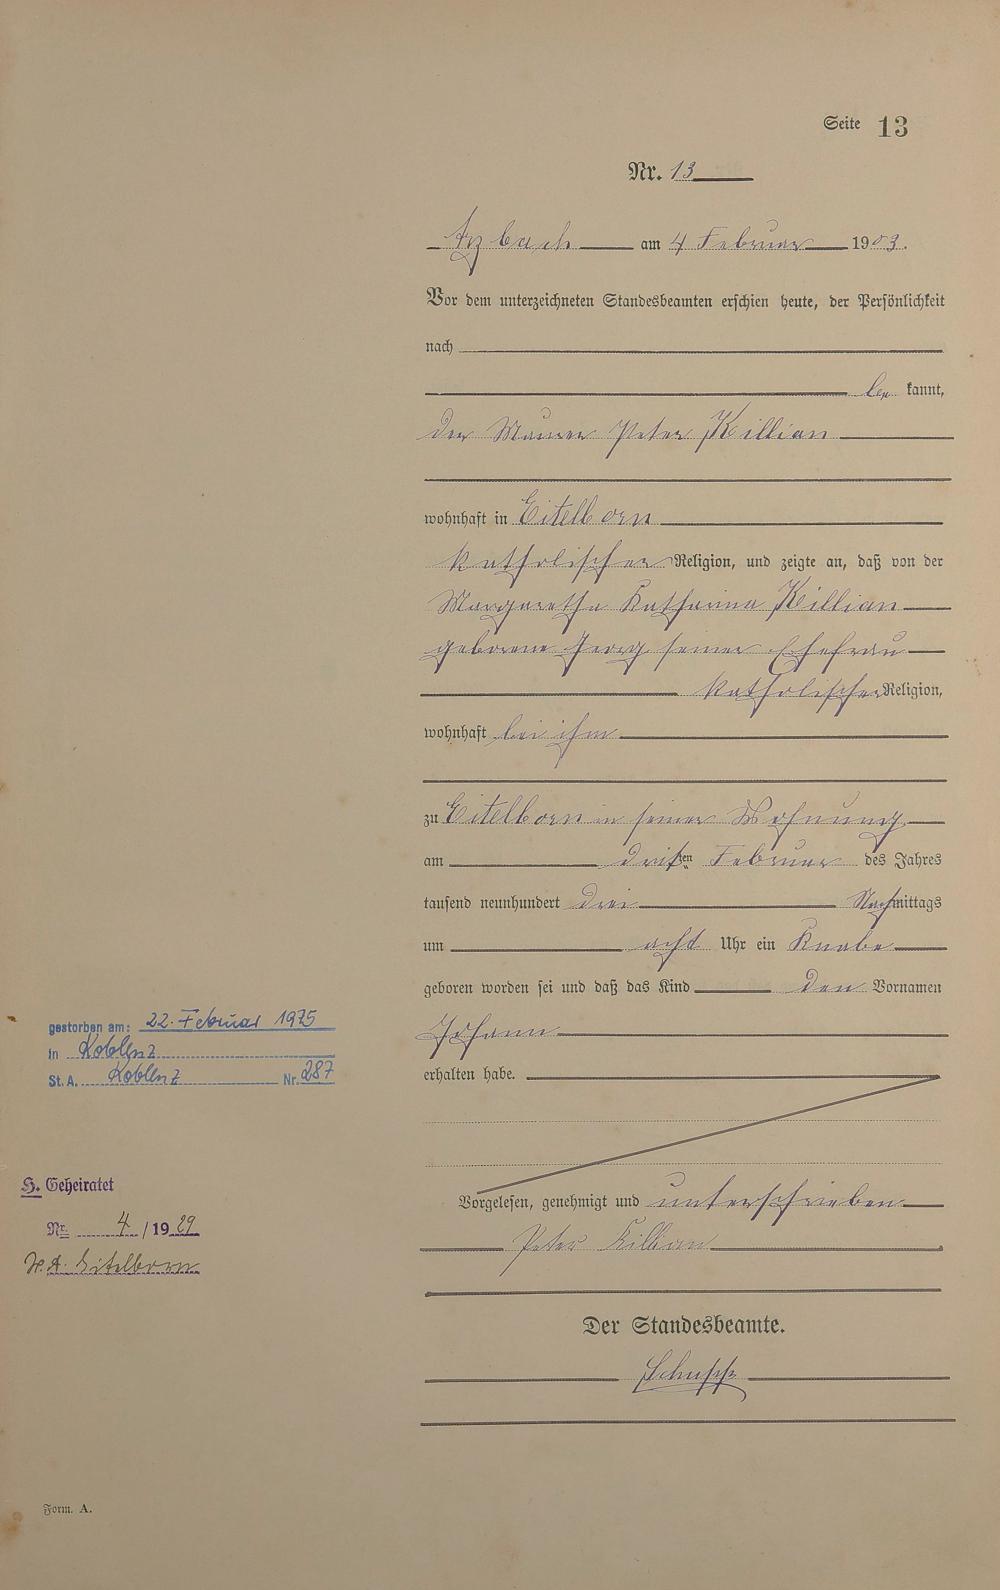 Seite 13
Nr. 13
Arzbach am 4 Februar 1903.
Vor dem unterzeichneten Standesbeamten erschien heute, der Persönlichkeit
nach
be kannt,
der Maurer Peter Killian
wohnhaft in Eitelborn
katholischer Religion, und zeigte an, daß von der
Margaretha Katharina Killian
geborene Georg seiner Ehefrau
katholischer Religion,
wohnhaft bei ihm
zu Eitelborn in seiner Wohnung
am dritten Februar des Jahres
tausend neunhundert drei Nachmittags
um acht Uhr ein Knabe
geboren worden sei und daß das Kind den Vornamen
Johann
erhalten habe.
Vorgelesen, genehmigt und unterschrieben
Peter Killian
Der Standesbeamte.
Schupp
gestorben am: 22. Februar 1975
in Koblenz
St. A. Koblenz Nr. 287
H. Geheiratet
Nr. 4 / 1929
St. A. Eitelborn
Form. A.